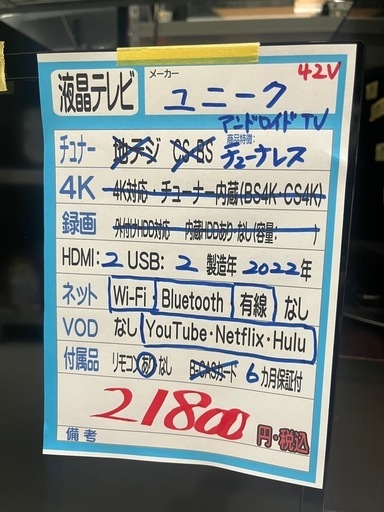 42V
液晶テレビ メーカー ユニーク
アンドロイドTV
チュナー 地デジ CS・BS 商品特徴: チューナレス
4K 4K対応・チューナー内蔵(BS4K・CS4K)
録画 外付けHDD対応 内蔵HDDあり・なし(容量: )
HDMI:2 USB:2 製造年 2022年
ネット Wi-Fi Bluetooth 有線 なし
VOD なし YouTube・Netflix・Hulu
付属品 リモコン あり なし B-CASカード 6カ月保証付
21800 円・税込
備考